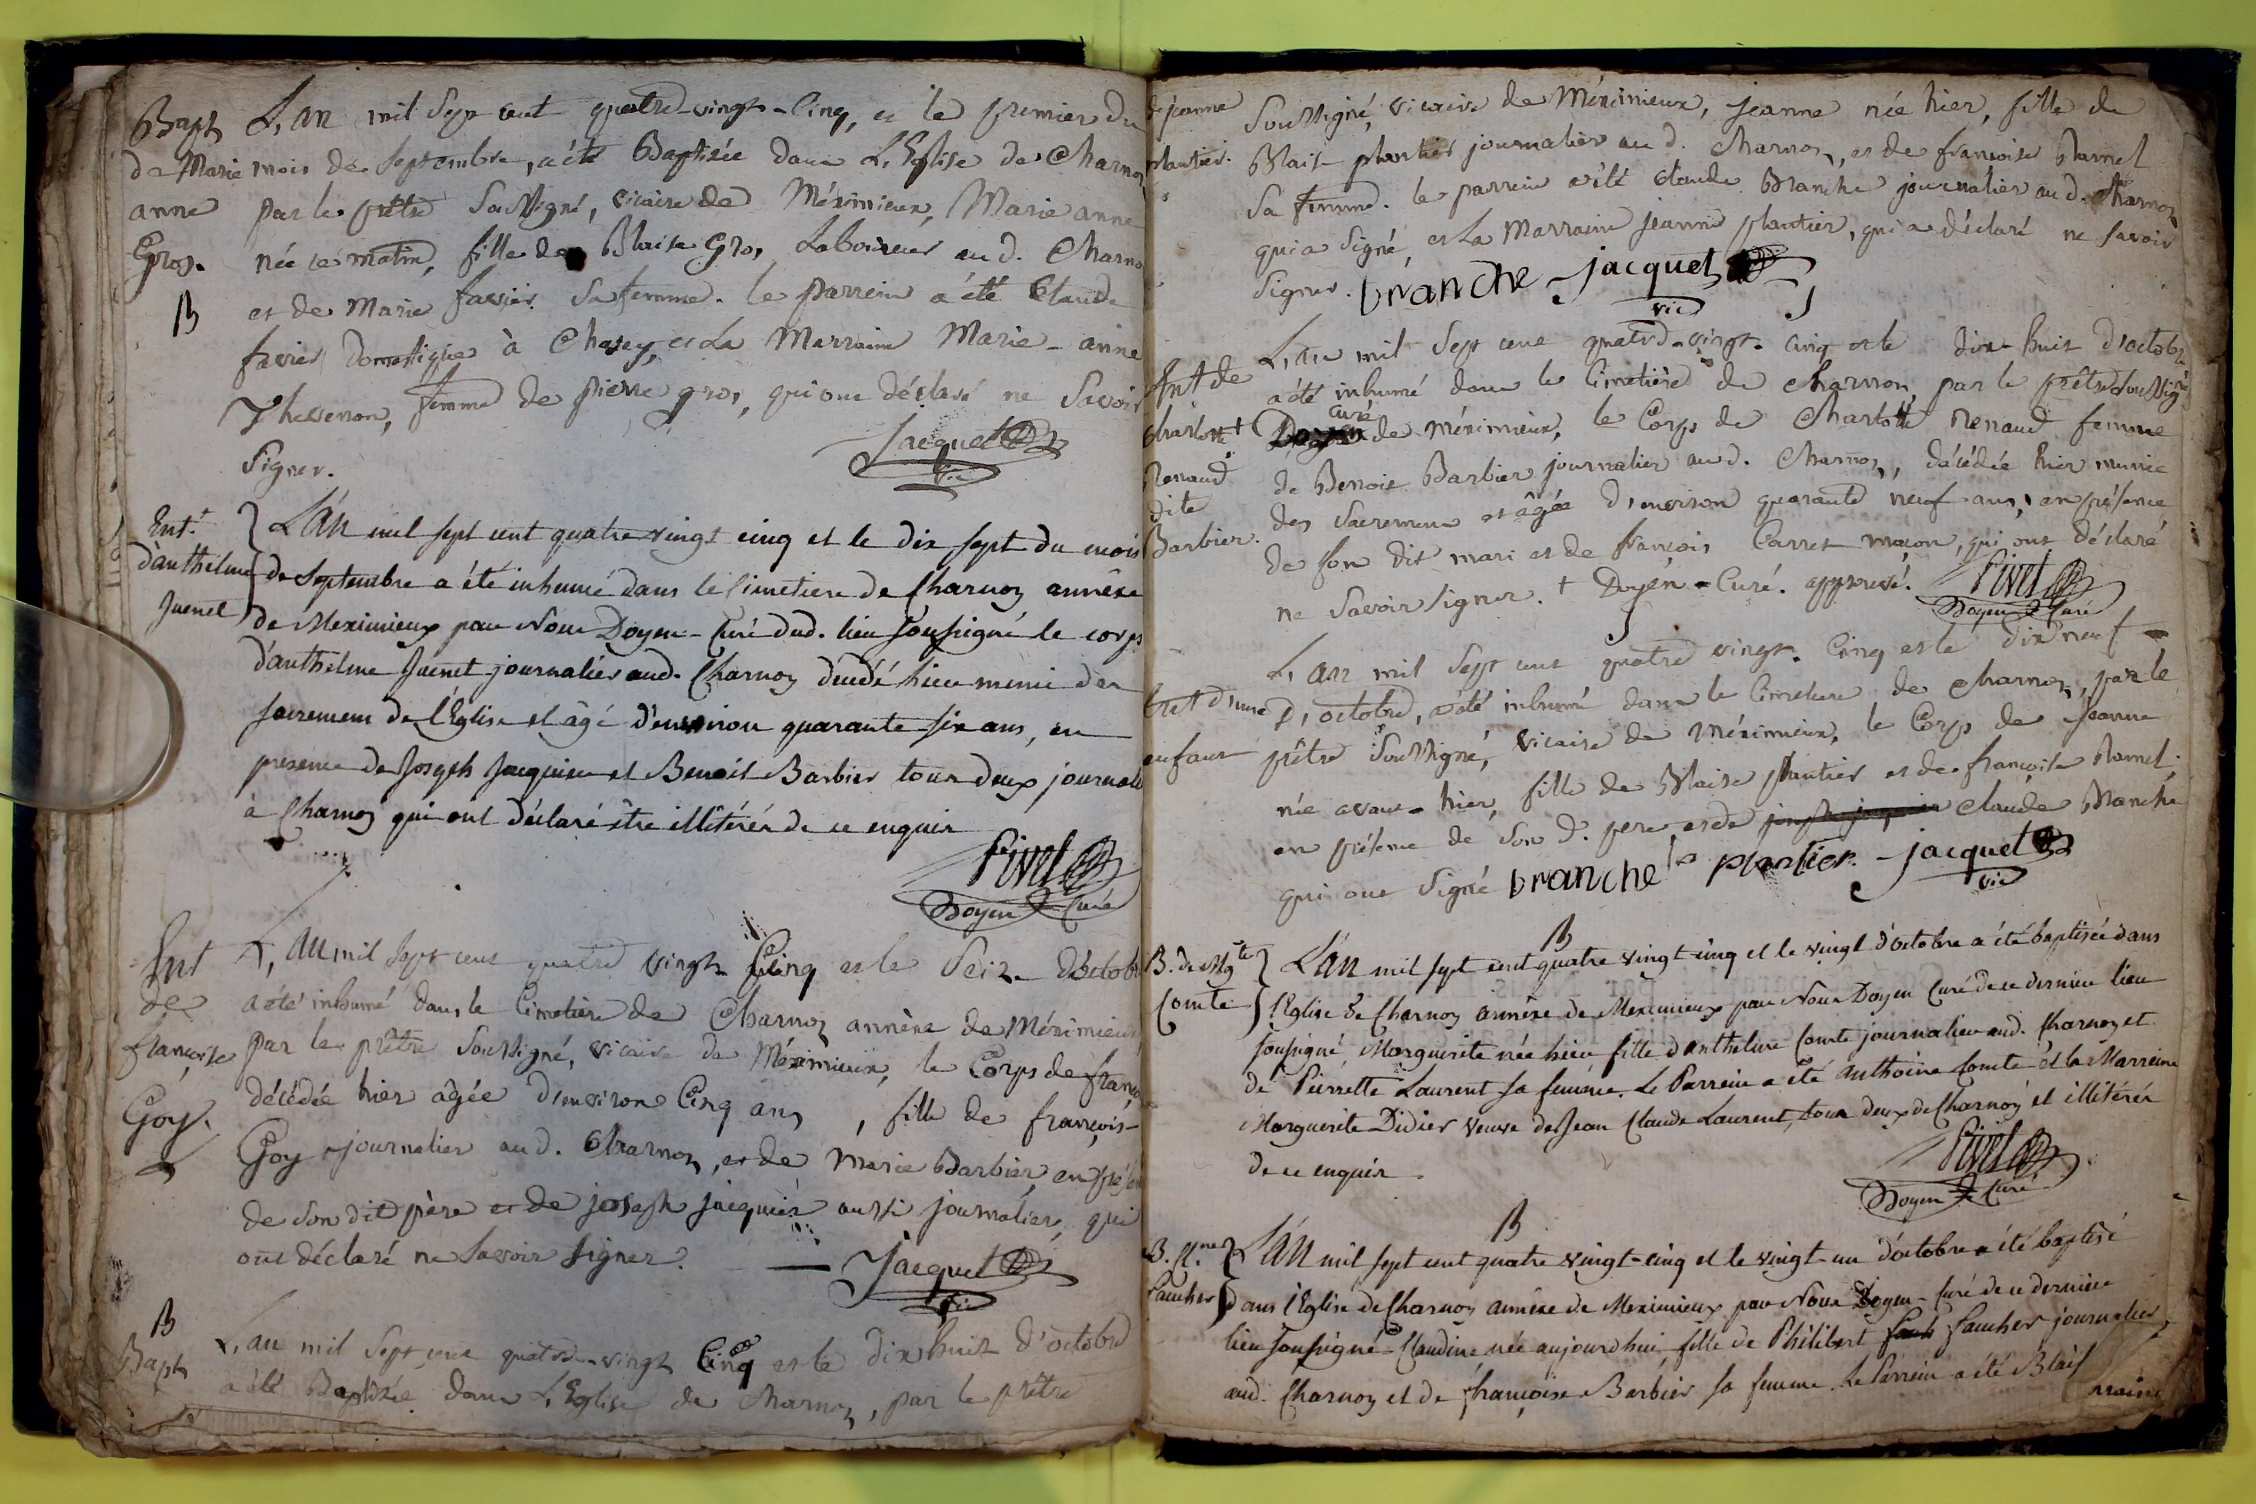 Bapt
de Marie
anne
Gros.
B
L'an mil sept cent quatre-vingt-cinq, et le premier du
mois de septembre, a été Baptisée dans L'Eglise de Charnoz
par le prêtre soussigné, vicaire de Méximieux, Marie anne
née ce matin, fille de Blaise Gros Laboureur au d. Charnoz
et de Marie favier sa femme. le parrein a été Claude
favier Domestique à Chasey, et La Marraine Marie-anne
Thevenon, femme de pierre gros, qui ont déclaré ne Savoir
Signer.
Jacquet
vic
Ent.t
d'anthelme
Juenet
L'an mil sept cent quatre vingt cinq et le dix sept du mois
de Septembre a été inhumé dans le Cimetiere de Charnoz annêxe
de Meximieux par Nous Doyen-Curé dud. lieu soussigné le corps
d'anthelme Juenet journalier aud. Charnoz décédé hier muni des
sacremens de l'Eglise et âgé d'environ quarante-six ans, en
presence de Joseph Jacquier et Benoit Barbier tous deux journali
à Charnoz qui ont déclaré être illitérés de ce enquis
Pivet
Doyen Curé
Ent
de
françoise
Goy.
L'an mil sept cent quatre vingt Cinq et le Seize D'octob
a été inhumé dans le Cimetière de Charnoz annêxe de Méximieux
par le prêtre soussigné, vicaire de Méximieux, le Corps de franç
décédée hier âgée d'environ Cinq ans, fille de françois-
Goy journalier au d. Charnoz, et de Marie Barbier, en prés
de son dit père et de joseph jacquier aussi journalier, qui
ont déclaré ne Savoir signer.
Jacquet
vic
B
Bapt
L'an mil Sept cent quatre-vingt Cinq et le dix huit d'octobre
a été Baptisée dans L'Eglise de Charnoz, par le prêtre
de jeanne
plantier.
soussigné, vicaire de Méximieux, jeanne née hier, fille de
Blaise plantier journalier au d. Charnoz, et de françoise Ramel
sa femme. le parrein a été Claude Branche journalier au d. Charnoz
qui a signé, et La Marraine jeanne plantier, qui a déclaré ne savoir
signer. branche jacquet
vic
Ent de
charlotte
Renaud
dite
Barbier.
L'an mil sept cent quatre-vingt-cinq et le dix-huit D'octobre
a été inhumé dans le Cimetière de Charnoz, par le prêtre soussigné
curé
† de Méximieux, le Corps de Charlotte Renaud femme
de Benoit Barbier journalier au d. Charnoz, décédée hier munie
des Sacremens et âgée d'environ quarante neuf ans, en présence
de son dit mari et de françois Carret maçon, qui ont déclaré
ne Savoir signer. † Doyen-Curé. approuvé.
Pivet
Doyen Curé
Ent d'une
enfant
L'an mil sept cent quatre vingt. Cinq et le dix neuf
D'octobre, a été inhumé dans le Cimetiere de Charnoz, par le
prêtre Soussigné, vicaire de Méximieux, le Corps de Jeanne
née avant-hier, fille de Blaise plantier et de françoise Ramel,
en présence de son d. pere, et de joseph jaquier claude Branche
qui ont signé branche plantier. jacquet
vic
B. de Mg.te
Comte
B
L'an mil sept cent quatre vingt-cinq et le vingt d'octobre a été baptisée dans
l'Eglise de Charnoz annêxe de Meximieux par Nous Doyen Curé de ce dernier lieu
soussigné, Marguerite née hier fille d'anthelme Comte journalier aud. Charnoz et
de Pierrette Laurent sa femme. Le Parrein a été Anthoine Comte et la Marreine
Marguerite Didier veuve de Jean Claude Laurent, tous deux de Charnoz et illitérés
de ce enquis
Pivet
Doyen Curé
B. Cl.ne
faucher
B
L'an mil sept cent quatre vingt-cinq et le vingt-un d'octobre a été baptisé
dans l'Eglise de Charnoz annêxe de Meximieux par Nous Doyen-Curé de ce dernier
lieu soussigné Claudine née aujourd'hui fille de Philibert fauch faucher journalier
aud. Charnoz et de françoise Barbier sa femme. Le Parrein a été Blais